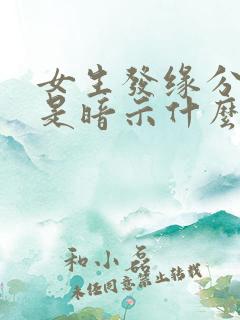 女生發缘分
是暗示什麼
和小磊
未经同意禁止转载